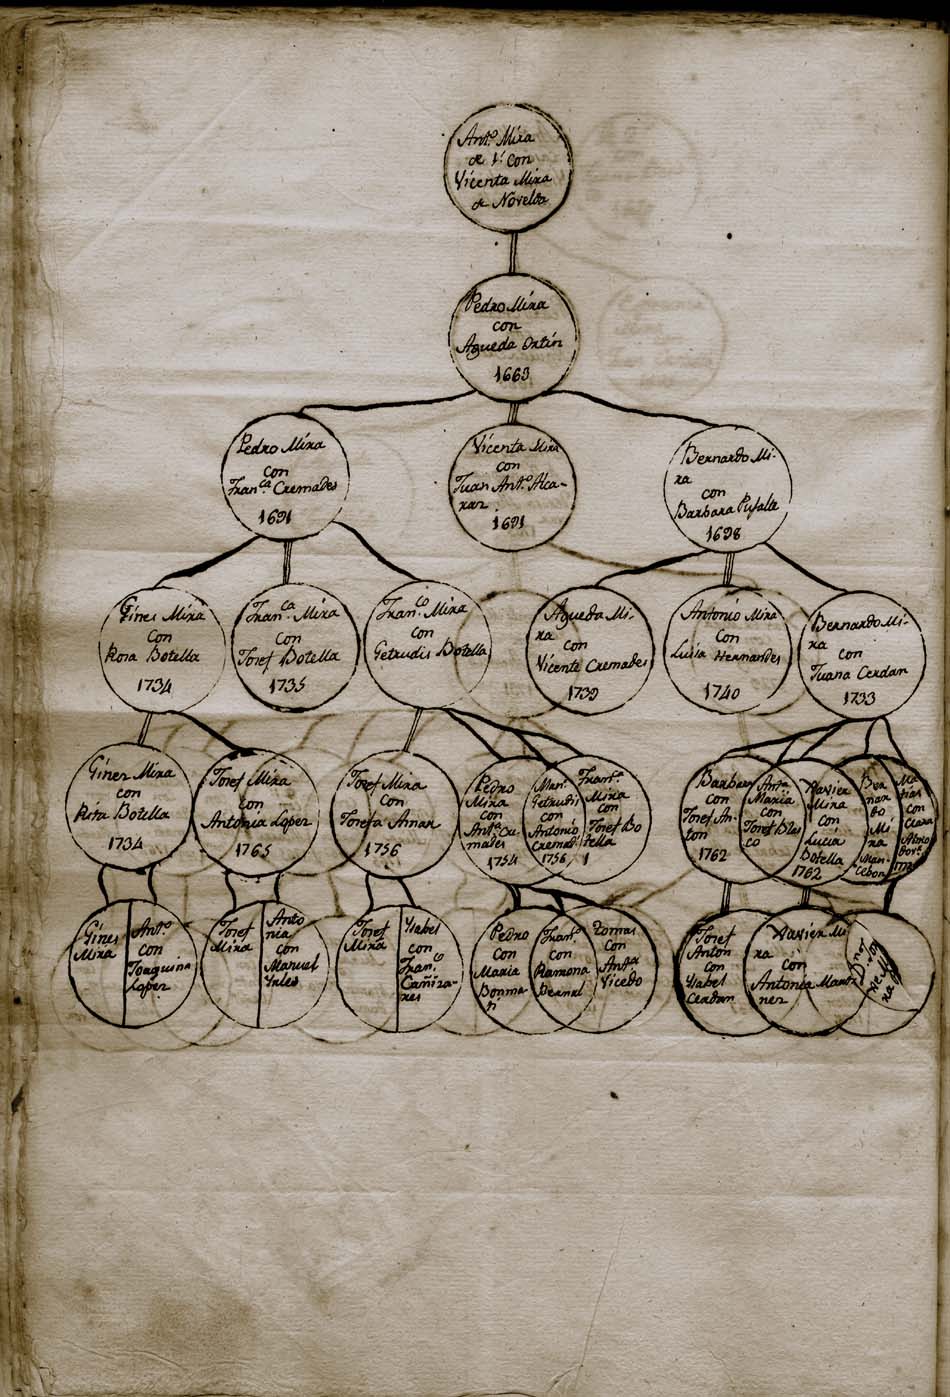 Ant.º Mira
de V.ᵗ con
Vicenta Mira
de Novelda
Pedro Mira
con
Agueda Ortin
1663
Pedro Mira
con
Fran.ca Cremades
1691
Vicenta Mira
con
Juan Ant.º Alca-
raz
1691
Bernardo Mi-
ra
con
Barbara Pujalte
1698
Gines Mira
con
Rosa Botella
1734
Fran.ca Mira
con
Josef Botella
1735
Fran.co Mira
con
Getrudis Botella
Agueda Mi-
ra
con
Vicente Cremades
1739
Antonio Mira
con
Lucia Hernandes
1740
Bernardo Mi-
ra
con
Juana Cerdan
1733
Gines Mira
con
Rita Botella
1734
Josef Mira
con
Antonia Lopez
1765
Josef Mira
con
Josefa Arnan
1756
Pedro
Mira
con
Ant.ª Cre-
mades
1754
Mari.
Getrudis
con
Antonio
Cremad.
1756
Fran.ca
Mira
con
Josef Bo
tella
1
Barbara
con
Josef An-
ton
1762
Ant.ª
Maria
con
Josef Blas
co
Xavier
Mira
con
Lucia
Botella
1762
Ber
nar
do
Mi
ra
Man-
cebon
Ma
tias
con
Clara
Gines
Mira
Ant.º
con
Joaquina
Lopez
Josef
Mira
Anto
nia
con
Manuel
Yñes
Josef
Mira
Ysabel
con
Fran.co
Cañiza-
res
Pedro
con
Maria
Bonma-
ti
Fran.º
con
Ramona
Bernal
Tomas
con
Ant.ª
Vicedo
Josef
Anton
con
Ysabel
Cerdan
Xavier Mi
ra
con
Antonia Marti
nez